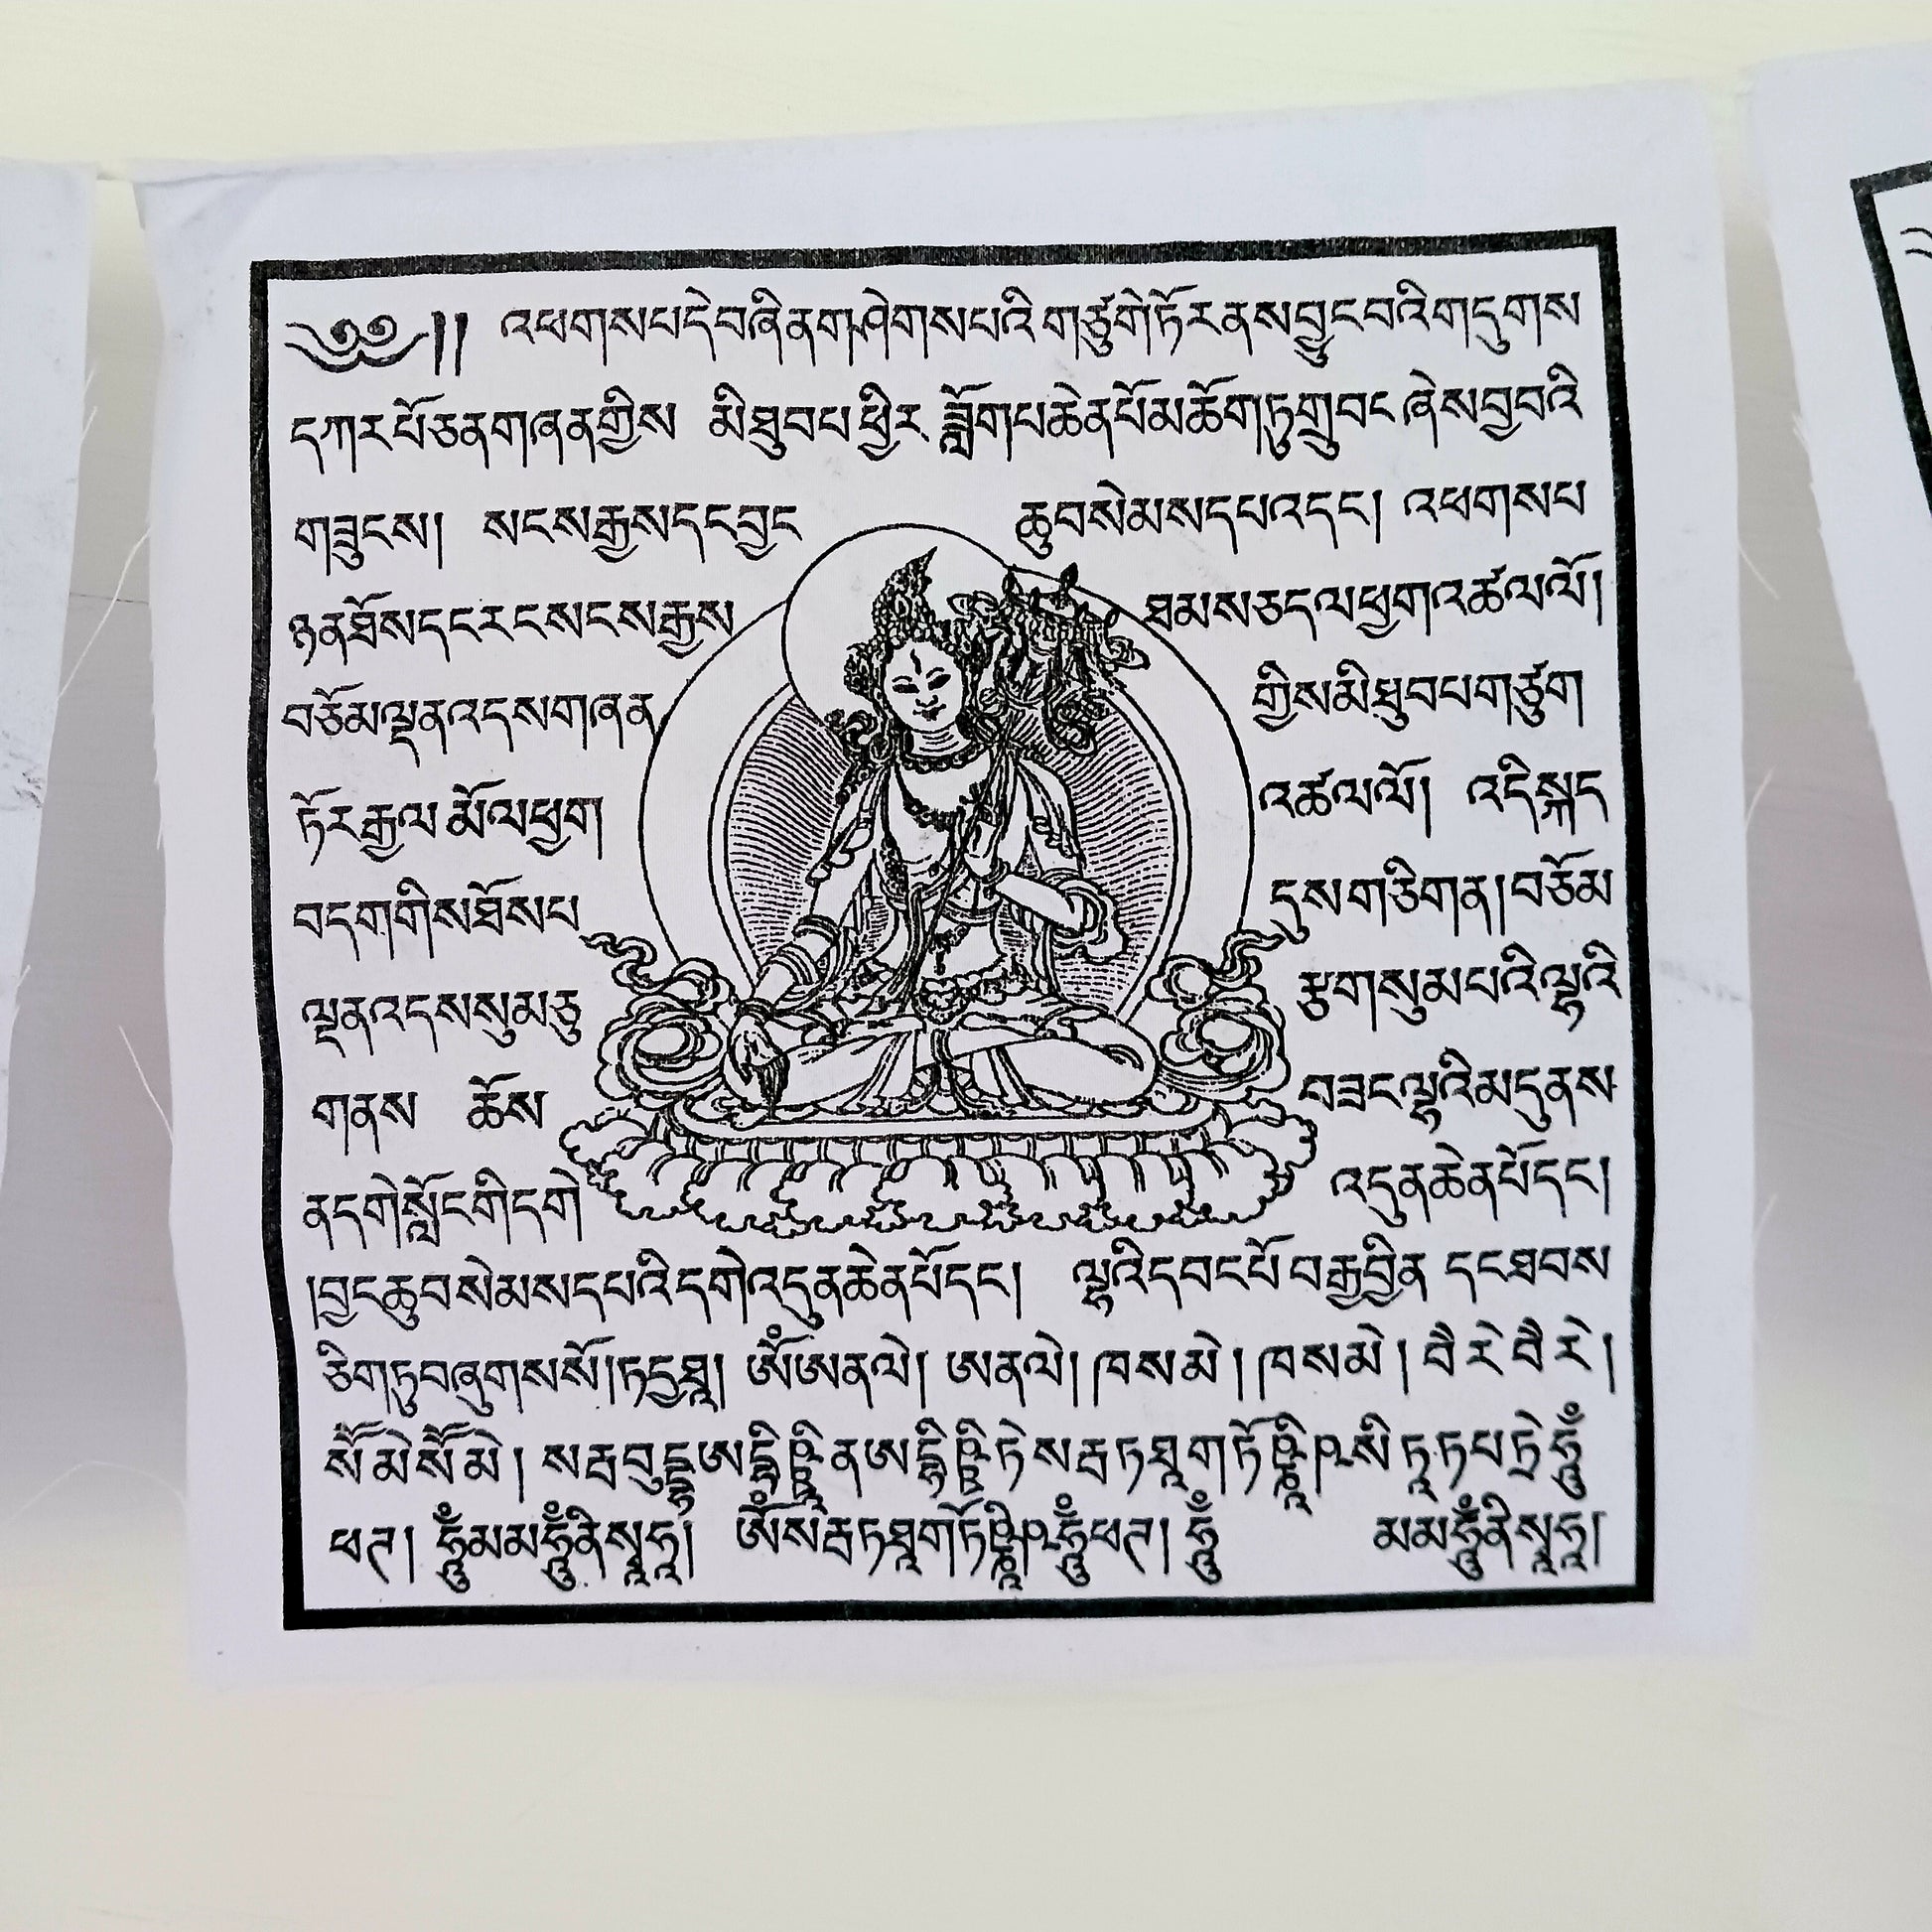 ༄༅།། འཕགསཔདེབཞིནགཤེགསཔའིགཙུགཏོརནསབྱུངབའིགདུགས
དཀརཔོཅནགཞནགྱིས མིཐུབཔཕྱིར་ཟློགཔཆེནཔོམཆོགཏུགྲུབང་ཞེསབྱབའི
གཟུངས། སངསརྒྱསདངབྱང ཆུབསེམསདཔའདང། འཕགསཔ
ཉནཐོསདངརངསངསརྒྱས ཐམསཅདལཕྱགའཚལལོ།
བཅོམལྡནའདསགཞན གྱིསམིཐུབཔགཙུག
ཏོརརྒྱལམོལཕྱག འཚལལོ། འདིསྐད
བདགགིསཐོསཔ དུསགཅིགན།བཅོམ
ལྡནའདསསུམཅུ རྩགསུམཔའིལྷའི
གནས ཆོས བཟངལྷའིམདུནས
ནདགེསློངགིདགེ འདུནཆེནཔོདང།
།བྱངཆུབསེམསདཔའིདགེའདུནཆེནཔོདང། ལྷའིདབངཔོབརྒྱབྱིན དངཐབས
ཅིགཏུབཞུགསསོ།ཏདྱཐཱ། ཨོཾཨནལེ། ཨནལེ། ཁསམེ། ཁསམེ། བཻརེབཻརེ།
སོཽམེསོཽམེ། སརྦབུདྡྷཨདྷིཥྛཱནཨདྷིཥྛིཏེསརྦཏཐཱགཏོཥྞཱིཥསིཏཱཏཔཏྲེཧཱུྃ
ཕཊ། ཧཱུྃམམཧཱུྃནིསྭཱཧཱ། ཨོཾསརྦཏཐཱགཏོཥྞཱིཥཧཱུྃཕཊ། ཧཱུྃ མམཧཱུྃནིསྭཱཧཱ།